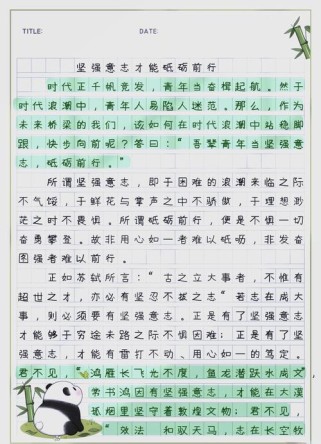 TITLE: DATE:
坚强意志才能砥砺前行
时代正千帆竞发，青年当奋楫起航。然于
时代浪潮中，青年人易陷入迷茫。那么，作为
未来桥梁的我们，该如何在时代浪潮中站稳脚
跟，快步向前呢？答曰："吾辈青年当坚强意
志，砥砺前行。"
所谓坚强意志，即于困难的浪潮来临之际
不气馁，于鲜花与掌声之中不骄傲，于理想渺
茫之时不畏惧。所谓砥砺前行，便是不惧一切
奋勇攀登。故非用心如一者难以砥砺，非发奋
图强者难以前行。
正如苏轼所言："古之立大事者，不惟有
超世之才，亦必有坚忍不拔之志"若志在成大
事，则必须要有坚强意志。正是有了坚强意志
才能够于穷途末路之际不惧困难；正是有了坚
强意志，才能有雷打不动、用心如一的笃定。
君不见，"鸿雁长飞光不度，鱼龙潜跃水成文"，
常书鸿因有坚强意志，才能在大漠
孤烟里坚守着敦煌文物；君不见，
"效法 和驭天马，志在长空牧